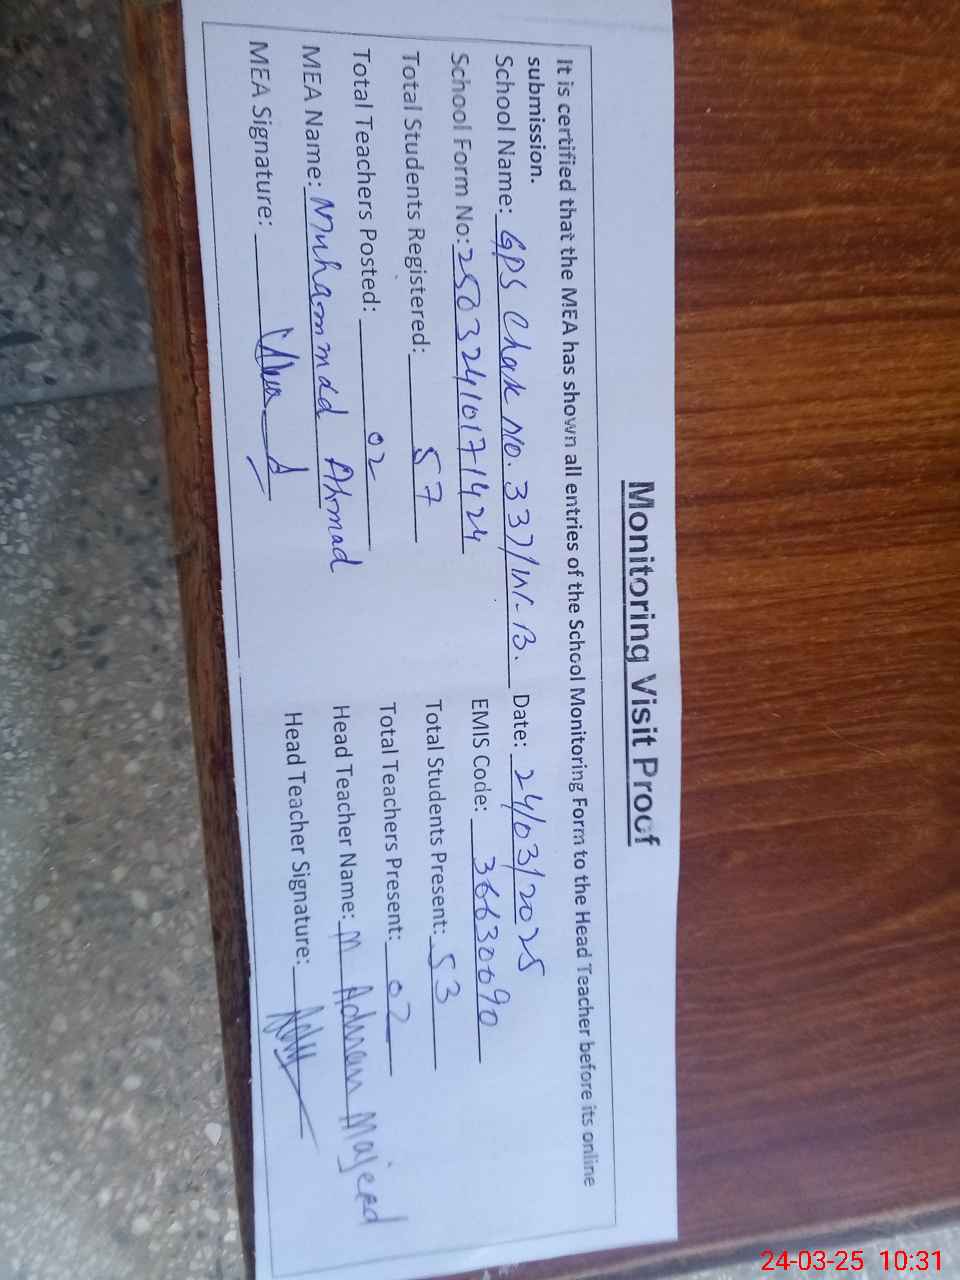 Monitoring Visit Proof
It is certified that the MEA has shown all entries of the School Monitoring Form to the Head Teacher before its online
submission.
School Name: GPS Chak No. 337/W-B. Date: 24/03/2025
School Form No: 25032410171424 EMIS Code: 36630690
Total Students Registered: 57 Total Students Present: 53
Total Teachers Posted: 02 Total Teachers Present: 02
MEA Name: Muhammad Ahmad Head Teacher Name: M Adnan Majeed
MEA Signature: Head Teacher Signature:
24-03-25 10:31